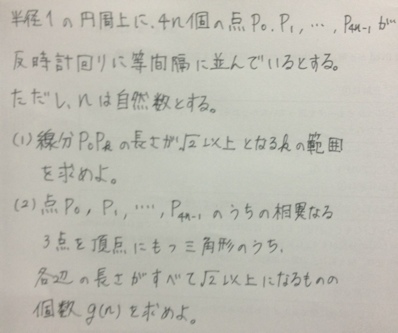 半径1の円周上に、4n個の点P0、P1、…、P4n-1が
反時計回りに等間隔に並んでいるとする。
ただし、nは自然数とする。
(1)線分P0Pkの長さが√2以上となるkの範囲
を求めよ。
(2)点P0、P1、…、P4n-1のうちの相異なる
3点を頂点にもつ三角形のうち、
各辺の長さがすべて√2以上になるものの
個数g(n)を求めよ。